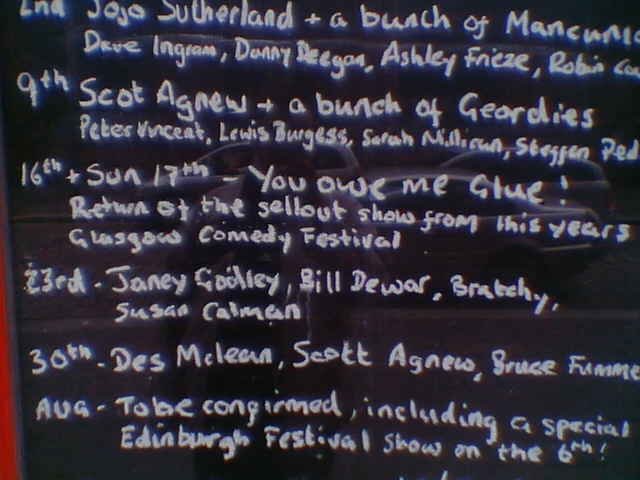 2nd Jojo Sutherland + a bunch of
Dave Ingram, Danny Deegan, Ashley Frieze, Robin
9th Scot Agnew + a bunch of Geordies
Peter Vincent, Lewis Burgess, Sarah Millican, Steffen Ped
16th + Sun 17th - You owe me Glue!
Return of the sellout show from this years
Glasgow Comedy Festival
23rd - Janey Godley, Bill Dewar, Bratchy,
Susan Calman
30th - Des Mclean, Scott Agnew, Bruce Fumme
AUG - To be confirmed, including a special
Edinburgh Festival show on the 6th!